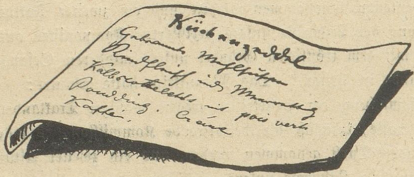 Küchenzeddel
Gebrannte Mehlsuppen
Rindfleisch mit Meerrettig
Kalbscotteletts mit pois verts
Poudding. Crème
Kaffee.